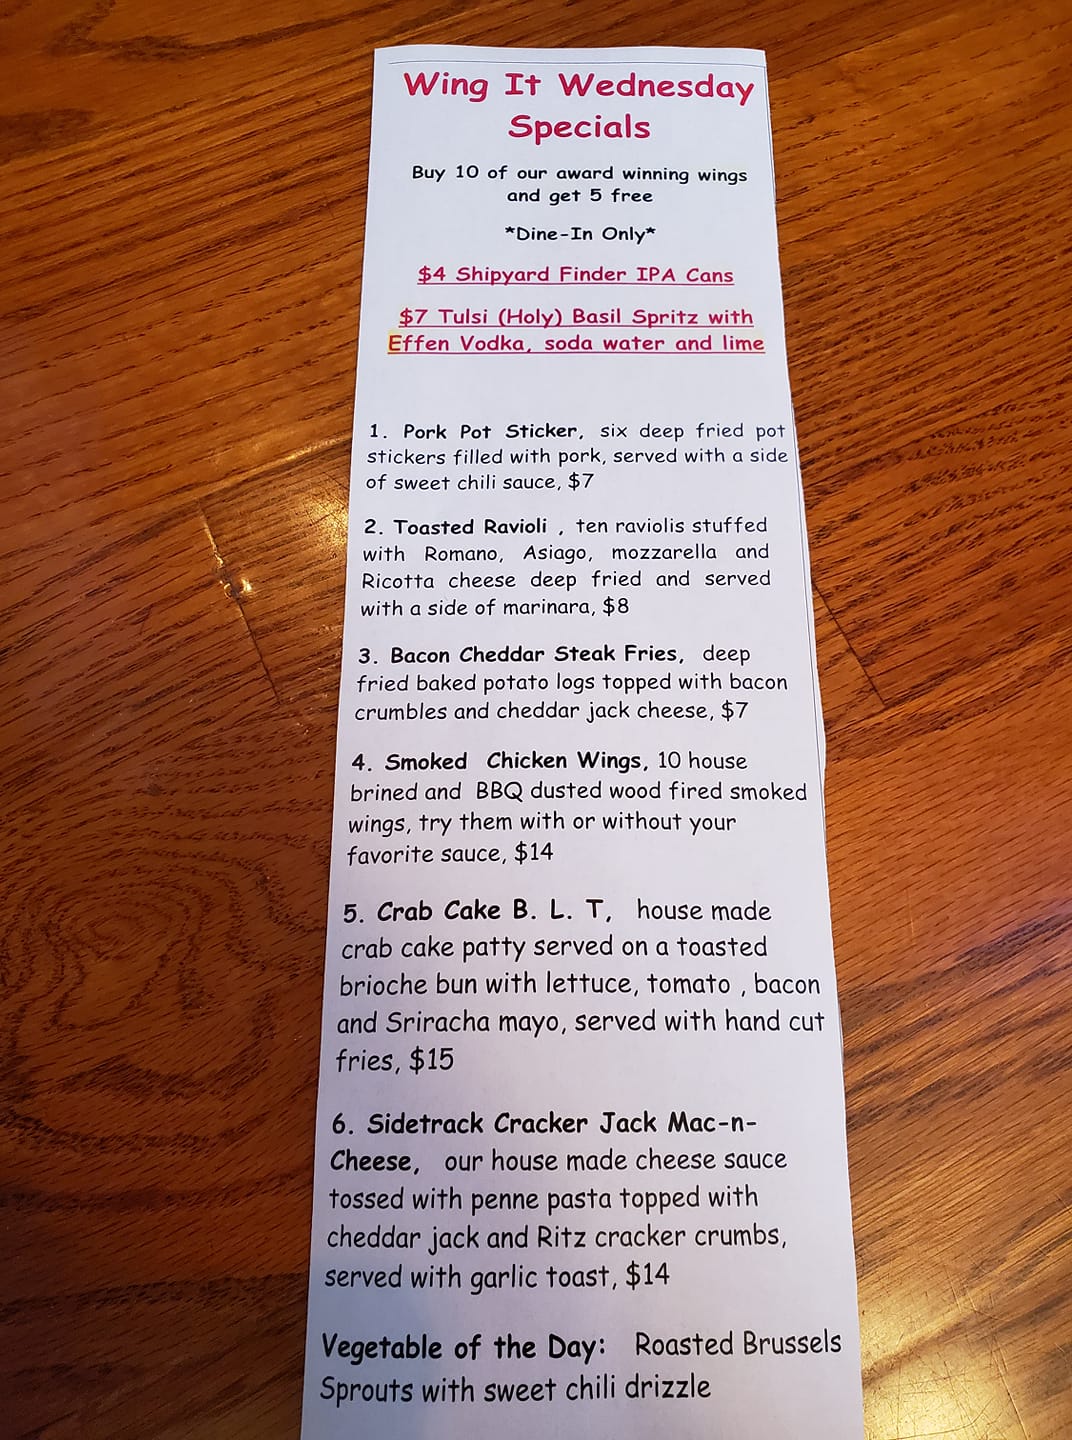 Wing It Wednesday
Specials
Buy 10 of our award winning wings
and get 5 free
*Dine-In Only*
$4 Shipyard Finder IPA Cans
$7 Tulsi (Holy) Basil Spritz with
Effen Vodka, soda water and lime
1. Pork Pot Sticker, six deep fried pot
stickers filled with pork, served with a side
of sweet chili sauce, $7
2. Toasted Ravioli , ten raviolis stuffed
with Romano, Asiago, mozzarella and
Ricotta cheese deep fried and served
with a side of marinara, $8
3. Bacon Cheddar Steak Fries, deep
fried baked potato logs topped with bacon
crumbles and cheddar jack cheese, $7
4. Smoked Chicken Wings, 10 house
brined and BBQ dusted wood fired smoked
wings, try them with or without your
favorite sauce, $14
5. Crab Cake B. L. T, house made
crab cake patty served on a toasted
brioche bun with lettuce, tomato , bacon
and Sriracha mayo, served with hand cut
fries, $15
6. Sidetrack Cracker Jack Mac-n-
Cheese, our house made cheese sauce
tossed with penne pasta topped with
cheddar jack and Ritz cracker crumbs,
served with garlic toast, $14
Vegetable of the Day: Roasted Brussels
Sprouts with sweet chili drizzle